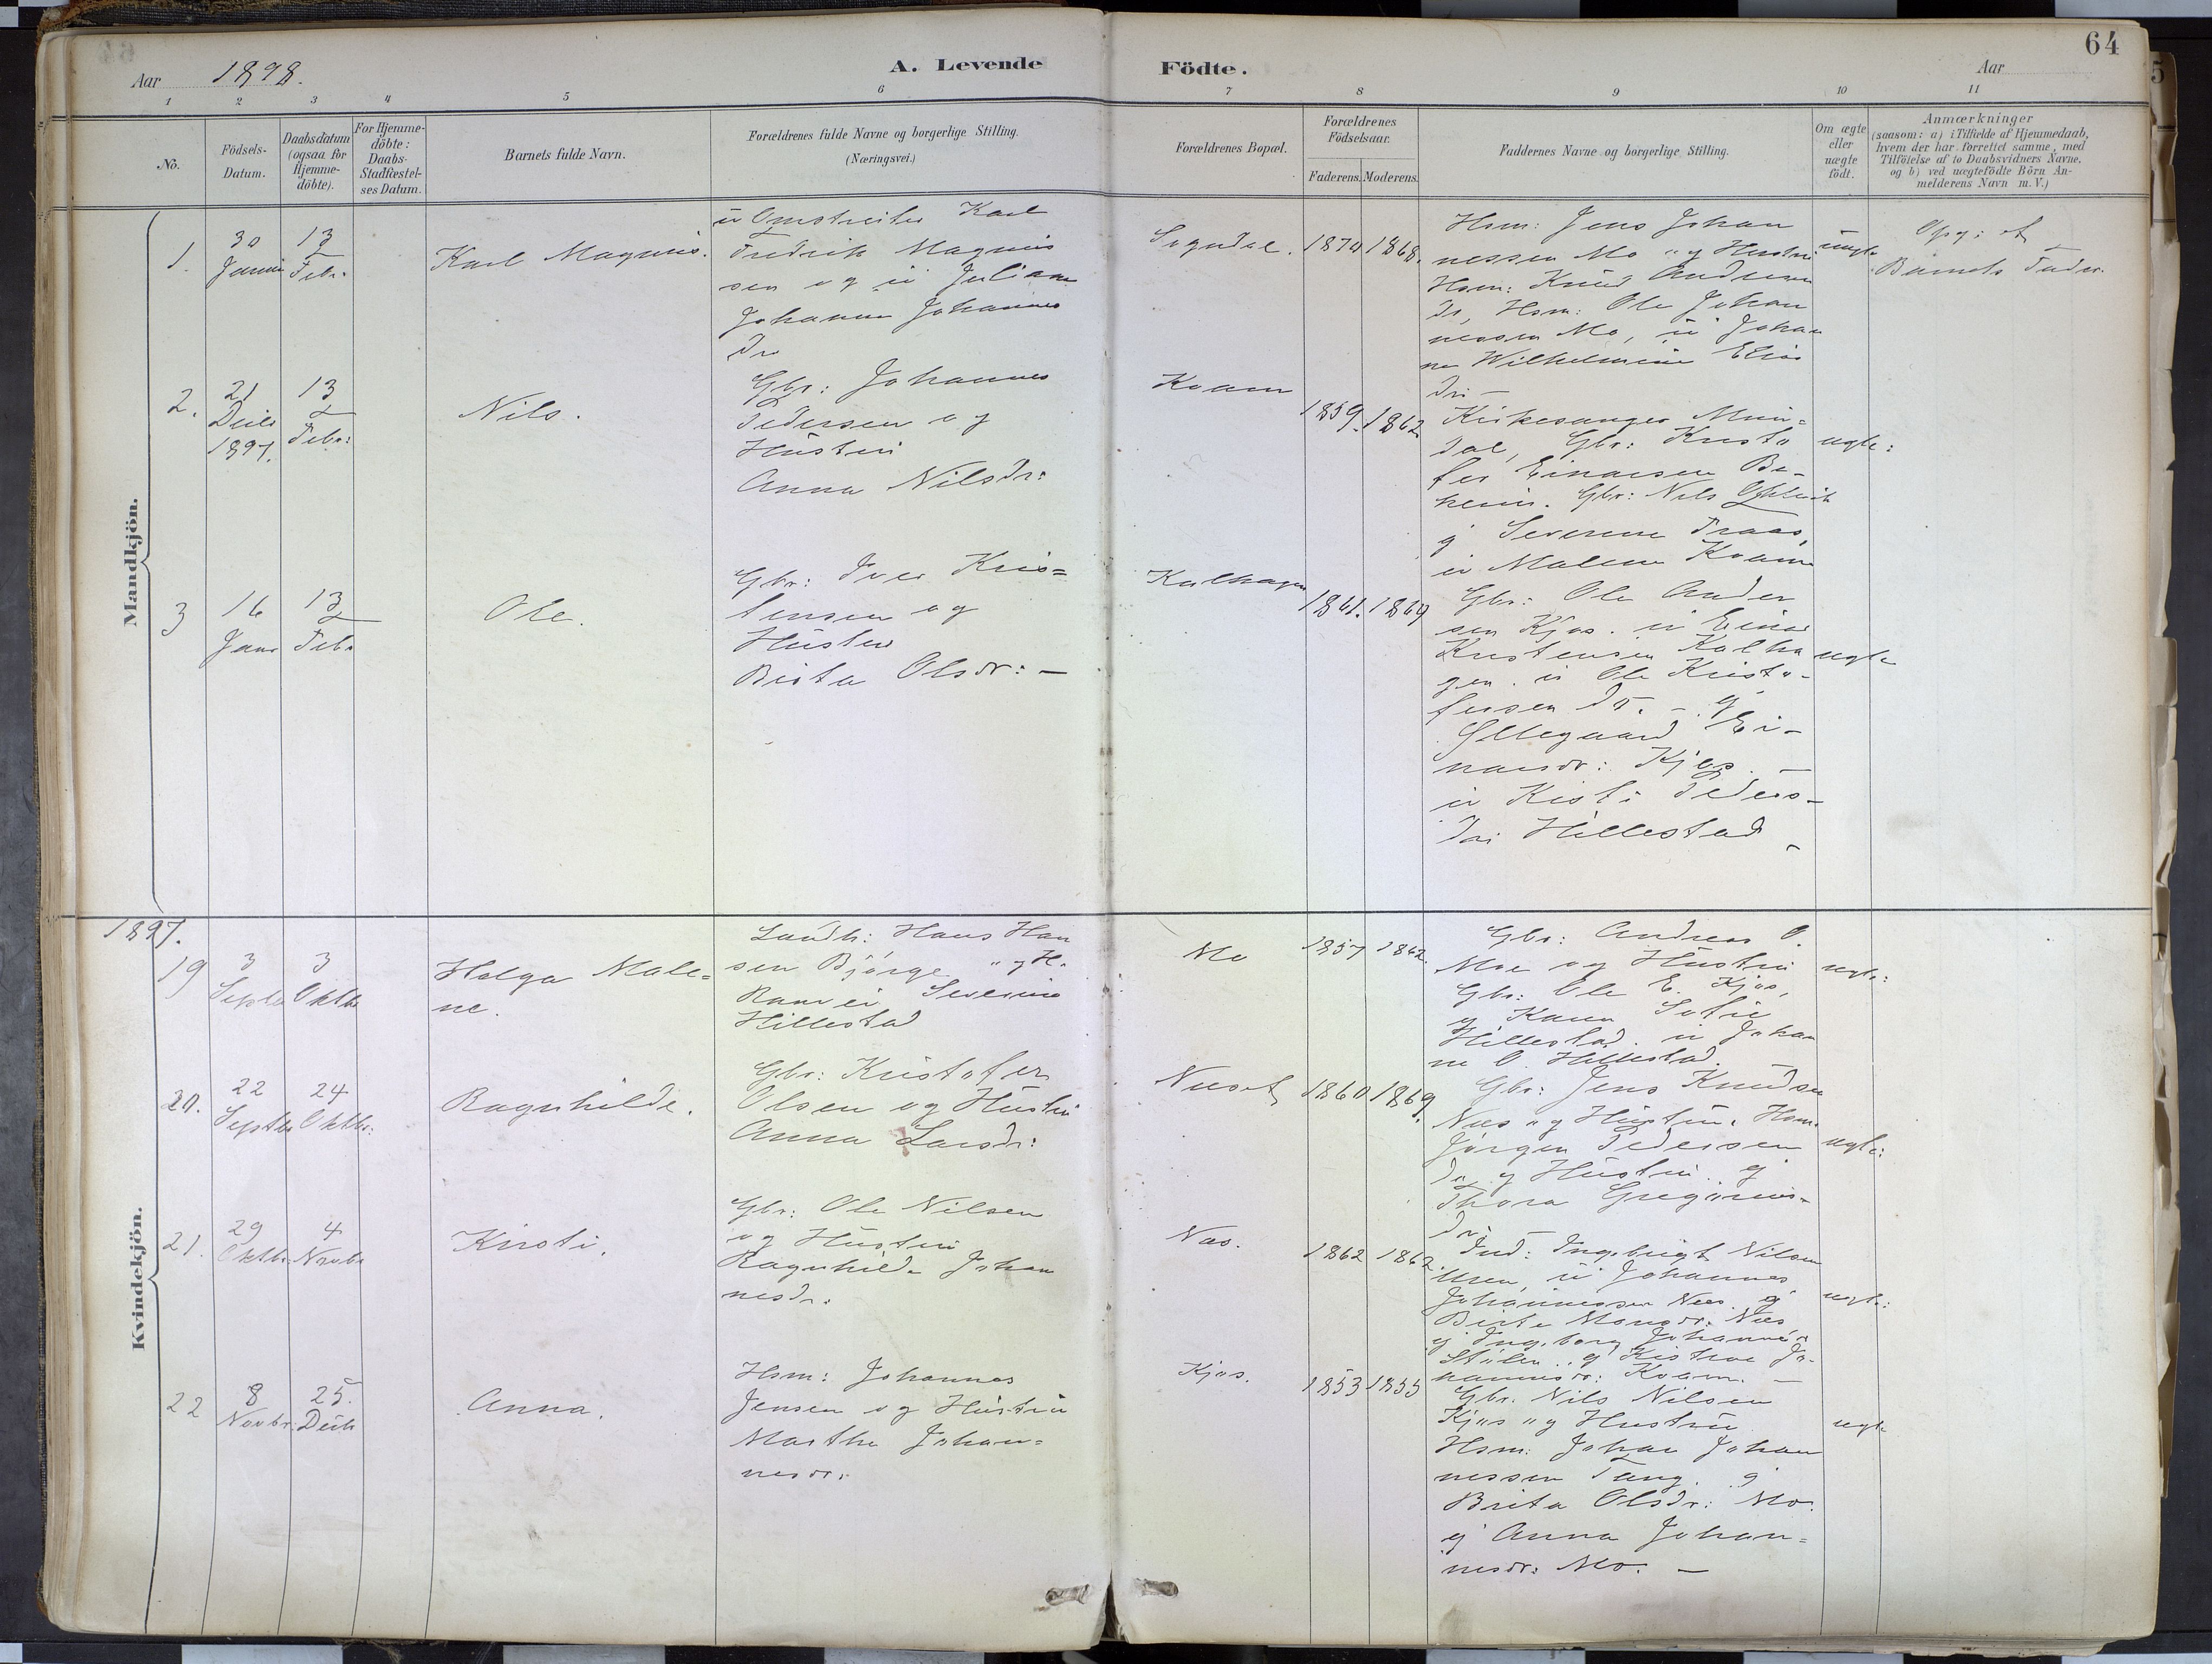 64
Aar 1898.
A. Levende Födte.
Aar
1 2 3 4 5 6 7 8 9 10 11
No.
Födsels-
Datum.
Daabsdatum
(ogsaa for
Hjemme-
döbte).
For Hjemme-
döbte:
Daabs-
Stadfæstel-
ses Datum.
Barnets fulde Navn.
Forældrenes fulde Navne og borgerlige Stilling.
(Næringsvei.)
Forældrenes Bopæl.
Forældrenes
Födselsaar.
Faderens. Moderens.
Faddernes Navne og borgerlige Stilling.
Om ægte
eller
uægte
födt.
Anmærkninger
(saasom: a) i Tilfælde af Hjemmedaab,
hvem der har forrettet samme, med
Tilföielse af to Daabsvidners Navne.
og b) ved uægtefödte Börn An-
melderens Navn m. V.)
Mandkjön.
1.
30
Januar
13
Febr.
Karl Magnus.
Karl
Fredrik Magnus
sen og ü Julianne
Johanna Johannes
dr
Sogndal.
1874 1868.
Hsm: Jens Johan
nessen Mo og Hustru
Hsm: Knud Andersen
do, Hsm: Ole Johan
nessen Mo, ü Johan
ne Wilhelmine Elias
dr: –
uægte
Opg: at
Barnets Fader.
2.
21
Decbr
1897.
13
Febr:
Nils.
Gbr: Johannes
Pedersen og
Hustru
Anna Nilsdr:
Kvam
1859. 1862
Kirkesanger Mun=
dal, Gbr: Kristo
fer Einarsen Be-
heim. Gbr: Nils
g Severine
ü Malene Kvam
ægte:
3
16
Janr
13
Febr
Ole.
Gbr: Iver Kris=
tensen og
Hustru
Brita Olsdr: –
Kalhagen
1861. 1869
Gbr: Ole Ander
sen Kjos. ü Einar
Kristensen Kalha
gen. ü Ole Kristo-
fersen do. – g
Ollegaard Ei-
narsdr: Kjos. –
ü Kisti Peders-
dr: Hillestad –
ægte
Kvindekjön.
1897.
19
3
Septbr
3
Oktbr
Helga Male=
ne.
Landh: Hans Han
sen Bjørge og H.
Severine
Hillestad
Mo
1857 1862.
Gbr: Andreas O.
Moe og Hustru
Gbr: Ole E. Kjos,
g Karen Sofie
Hillestad. ü Johan
ne O. Hillestad. –
ægte:
20.
22
Septbr
24
Oktbr:
Ragnhilde.
Gbr: Kristofer
Olsen og Hustru
Anna Larsdr:
Neset
1860 1869.
Gbr: Jens Knudsen
Næs og Hustru. Hsm.
Jørgen Pedersen
do og Hustru. g
Thora Gregorius-
dr: –
ægte:
21.
29
Oktbr.
4
Novbr
Kirsti.
Gbr: Ole Nilsen
og Hustru
Ragnhilde Johan
nesdr.
Næs.
1862 1862.
Ind: Ingebrigt Nilsen
Uren, ü Johannes
Johannessen Næs. g
Brita Monsdr: Næs
g Ingeborg Johannesdr
Stølen. g Kistine Jo-
hannesdr: Kvam. –
ægte:
22
8
Novbr.
25.
Decbr
Anna.
Hsm: Johannes
Jensen og Hustru
Martha Johan=
nesdr.
Kjos.
1853 1855
Gbr. Nils Nilsen
Kjos og Hustru
Hsm: Johan Johan
nessen Tang. g
Brita Olsdr: Mo.
g Anna Johan=
nesdr: Mo. –
ægte